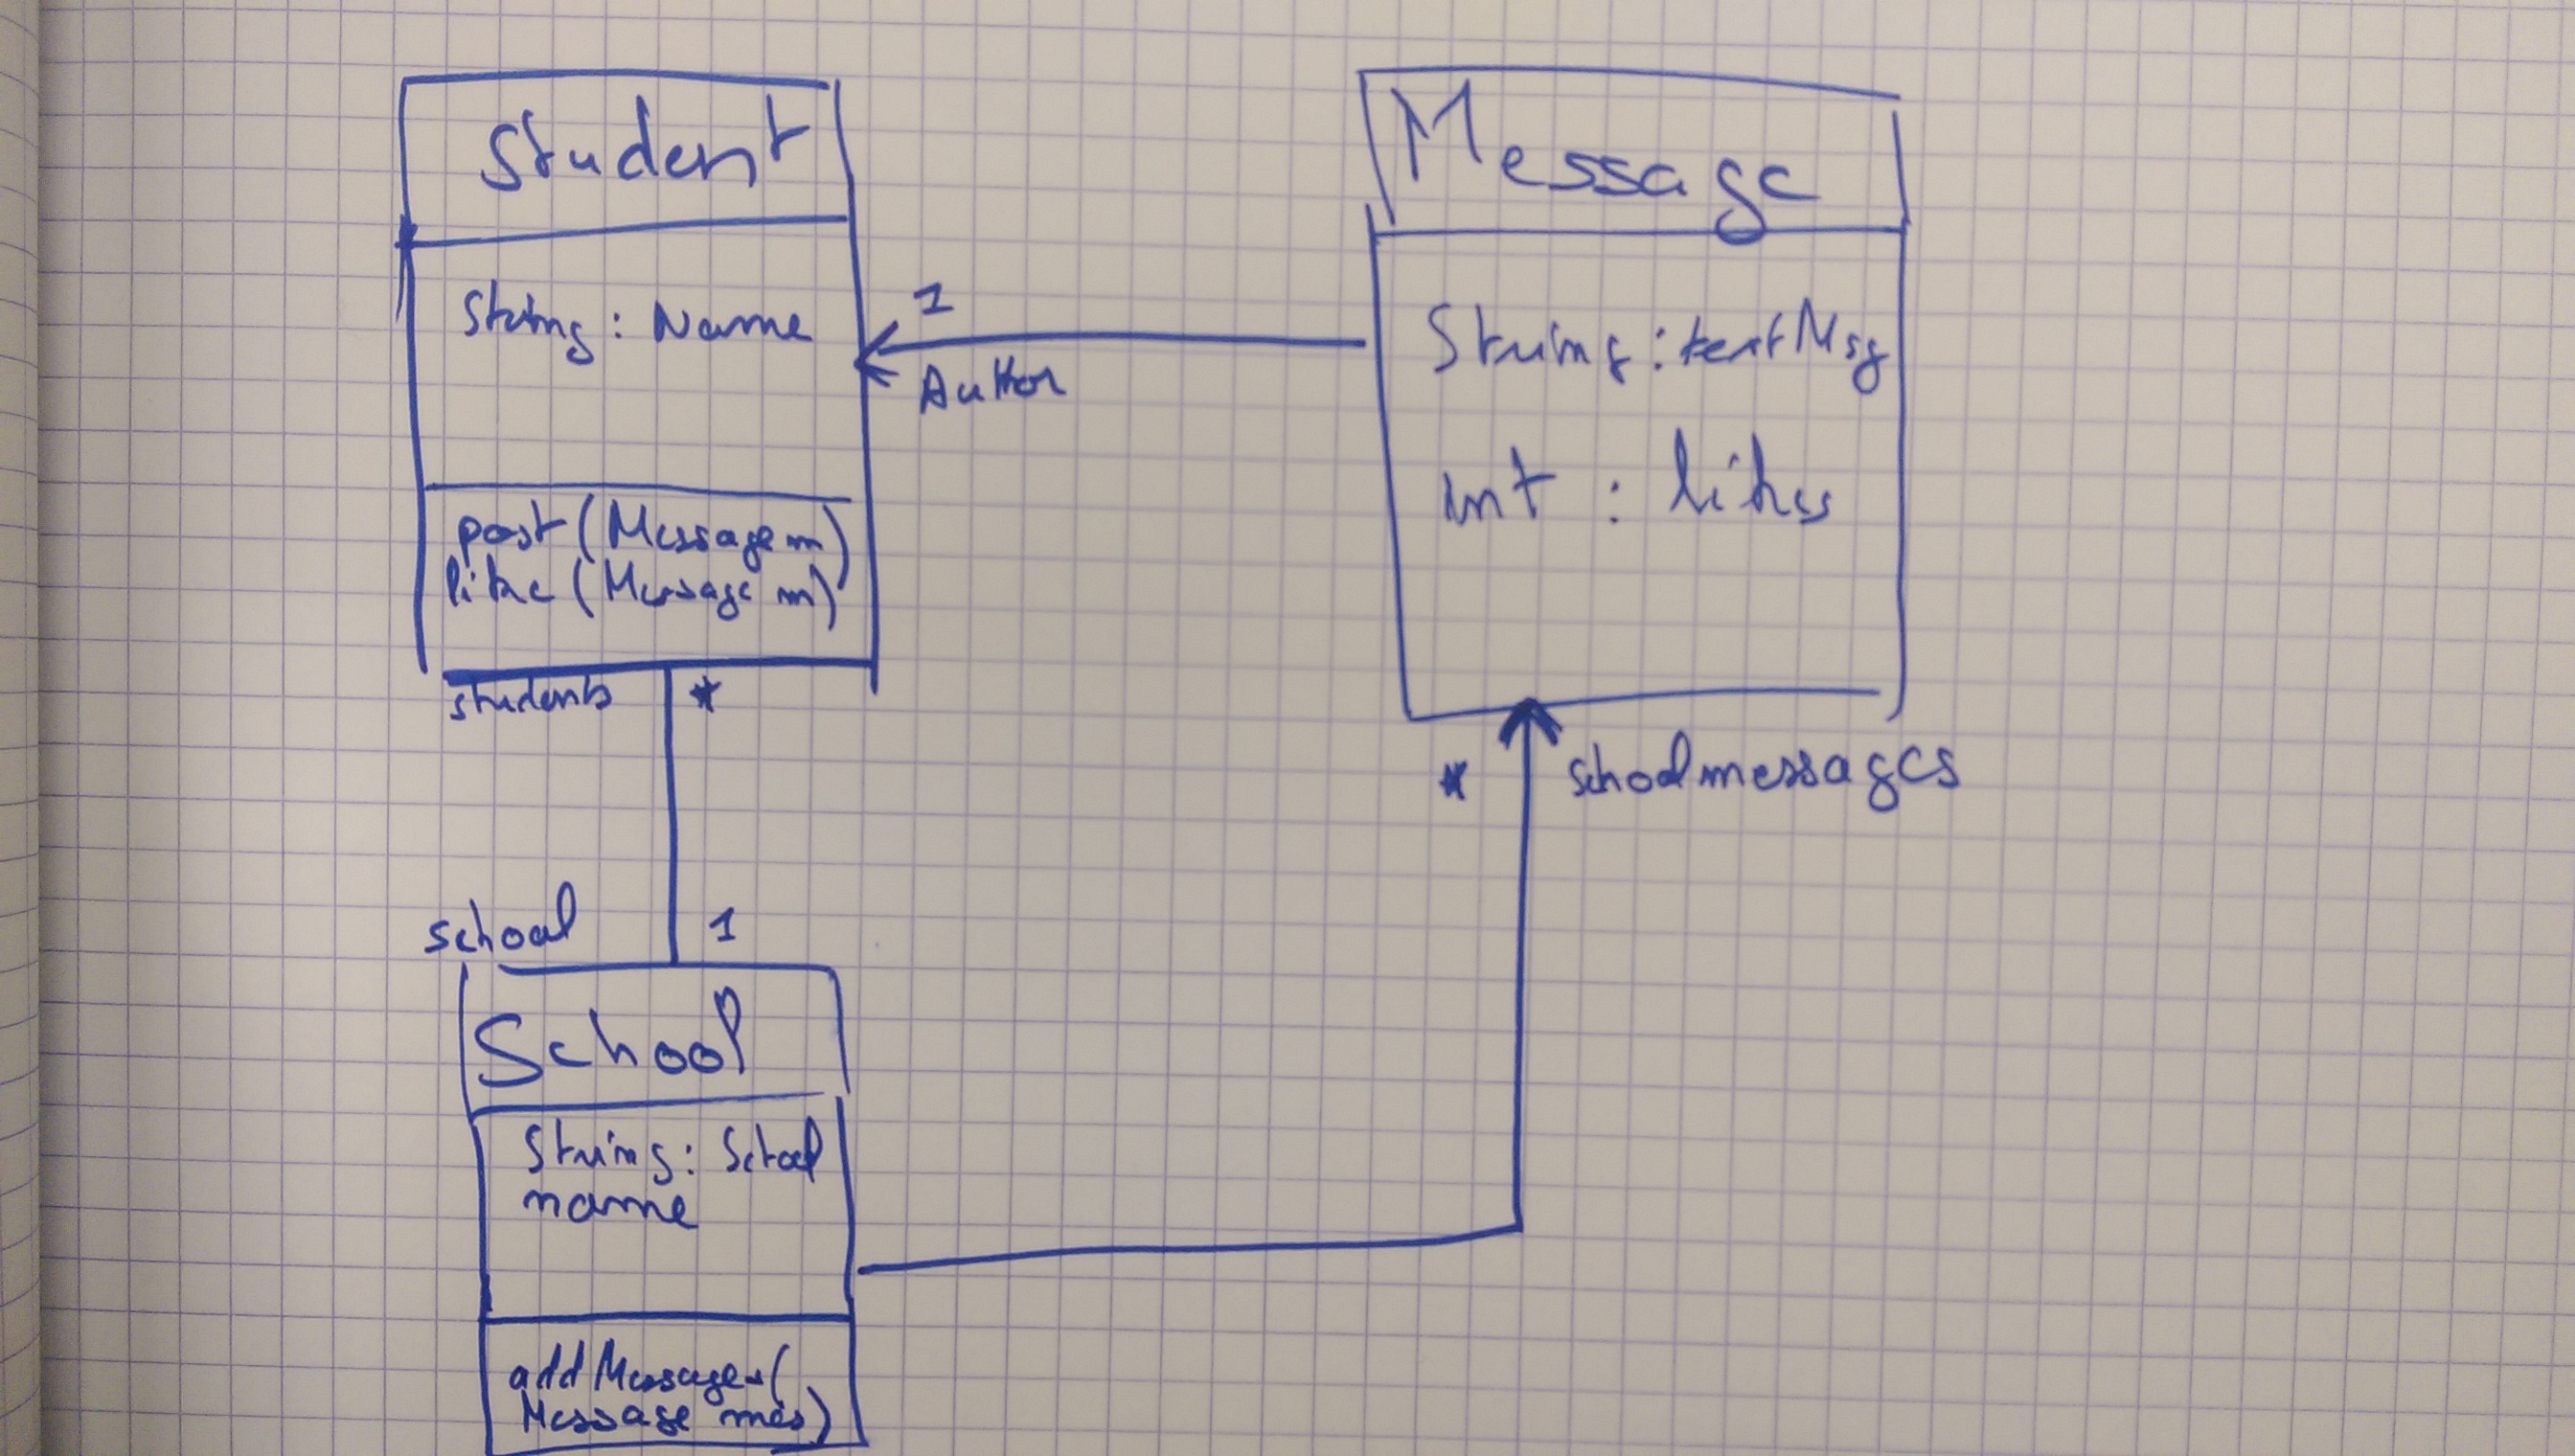 Student
String: Name
post (Message m)
like (Message m)
students *
1
Author
Message
String: textMsg
int : likes
* schoolmessages
school 1
School
String: School
name
addMessages(
Message mes)